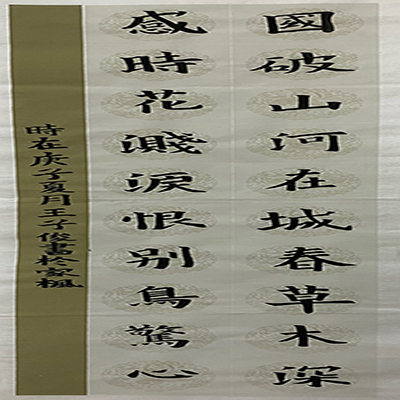 國破山河在城春草木深
感時花濺淚恨别鳥驚心
時在庚子夏月王子俊書於家楓